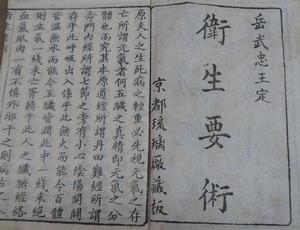 岳武忠王定
衛生要術
京都琉璃廠藏板
原夫人之生死病之輕重必先視元氣之存
亡所謂元氣者何五臟之真精即元氣之分
體也而究其本原道經所謂丹田難經所謂
命門內經所謂七節之旁有小心陰陽闔闢
存乎此呼吸出入係乎此無火而能令百體
皆溫無水而能令五臟皆潤此中一線未絕
則生氣一線未亡胥賴乎此人之臟腑經絡
血氣肌肉一有不慎外邪干之則病古之人